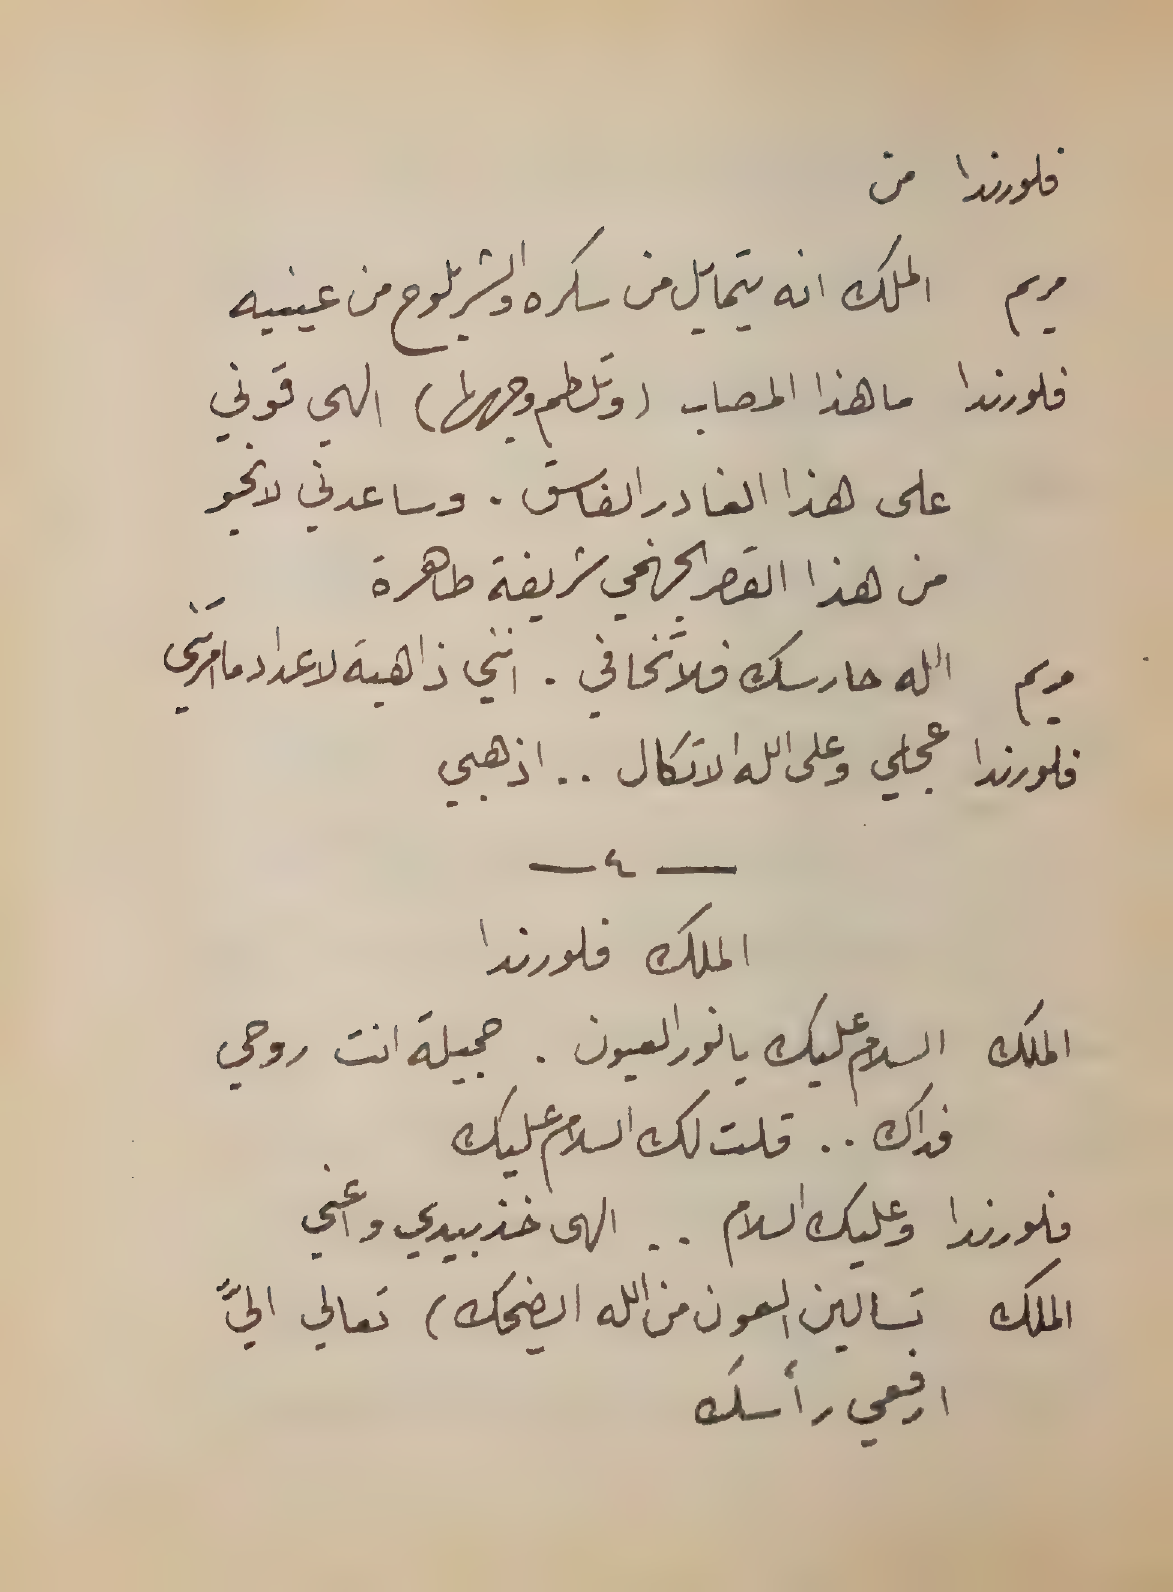 فلورندا من
مريم الملك انه يتمايل من سكره والشر يلوح من عينيه
فلورندا ما هذا المصاب (وتلطم وجهها) الهي قوني
على هذا الغادر الفاسق . وساعدني لانجو
من هذا القصر الجهنمي شريفة طاهرة
مريم الله حارسك فلا تخافي . انني ذاهبة لاعداد ما امرتني
فلورندا عجلي وعلى الله الاتكال .. اذهبي
— ٤ —
الملك فلورندا
الملك السلام عليك يا نور العيون . جميلة انت روحي
فداك .. قلت لك السلام عليك
فلورندا وعليك السلام .. الهى خذ بيدي واعني
الملك تسالين العون من الله ايضحك) تعالي اليَّ
ارفعي رأسك